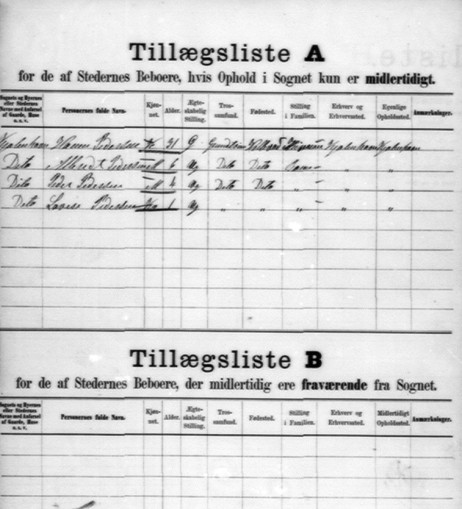 Tillægsliste A
for de af Stedernes Beboere, hvis Ophold i Sognet kun er midlertidigt.
Sognets og Byernes eller Stedernes Navne med Anførsel af Gaarde, Huse o.s.v. Personernes fulde Navn. Kjønnet. Alder. Ægteskabelig Stilling. Trossamfund. Fødested. Stilling i Familien. Erhverv og Erhvervssted. Egentlige Opholdssted. Anmærkninger.
Hanne Pedersen 31 G
Dito Albert Pedersen M 6 Ug Dito Dito
Dito Peder Pedersen M 4 Ug Dito Dito
Dito Pedersen 1 Ug " " " " "
Tillægsliste B
for de af Stedernes Beboere, der midlertidig ere fraværende fra Sognet.
Sognets og Byernes eller Stedernes Navne med Anførsel af Gaarde, Huse o.s.v. Personernes fulde Navn. Kjønnet. Alder. Ægteskabelig Stilling. Trossamfund. Fødested. Stilling i Familien. Erhverv og Erhvervssted. Midlertidigt Opholdssted. Anmærkninger.